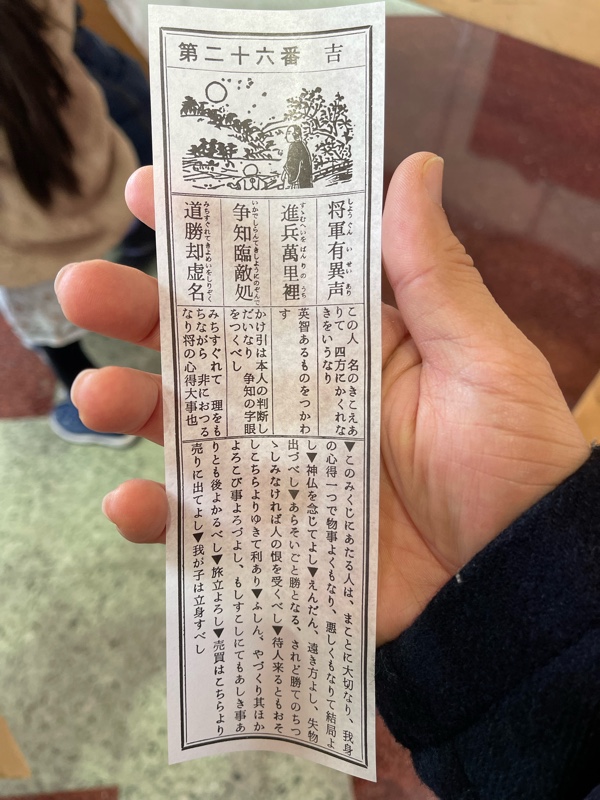 第二十六番 吉
しようぐんいせいあり
将軍有異声
すゝむへいをばんりのうち
進兵萬里裡
いかでしらんてきしようにのぞんで
争知臨敵処
みちすぐれてきよめいをしりぞく
道勝却虚名
この人 名のきこえあ
りて 四方にかくれな
きをいうなり
英智あるものをつかわ
す
かけ引は本人の判断し
だいなり 争知の字眼
をつくべし
みちすぐれて 理をも
ちながら 非におつる
なり将の心得大事也
▼このみくじにあたる人は、まことに大切なり、我身
の心得一つで物事よくもなり、悪しくもなりて結局よ
し▼神仏を念じてよし▼えんだん、遠き方よし、失物
出づべし▼あらそいごと勝となる、されど勝てのちつ
ゝしみなければ人の恨を受くべし▼待人来るともおそ
しこちらよりゆきて利あり▼ふしん、やづくり其ほか
よろこび事よろづよし、もしすこしにてもあしき事あ
りとも後よかるべし▼旅立よろし▼売買はこちらより
売りに出てよし▼我が子は立身すべし